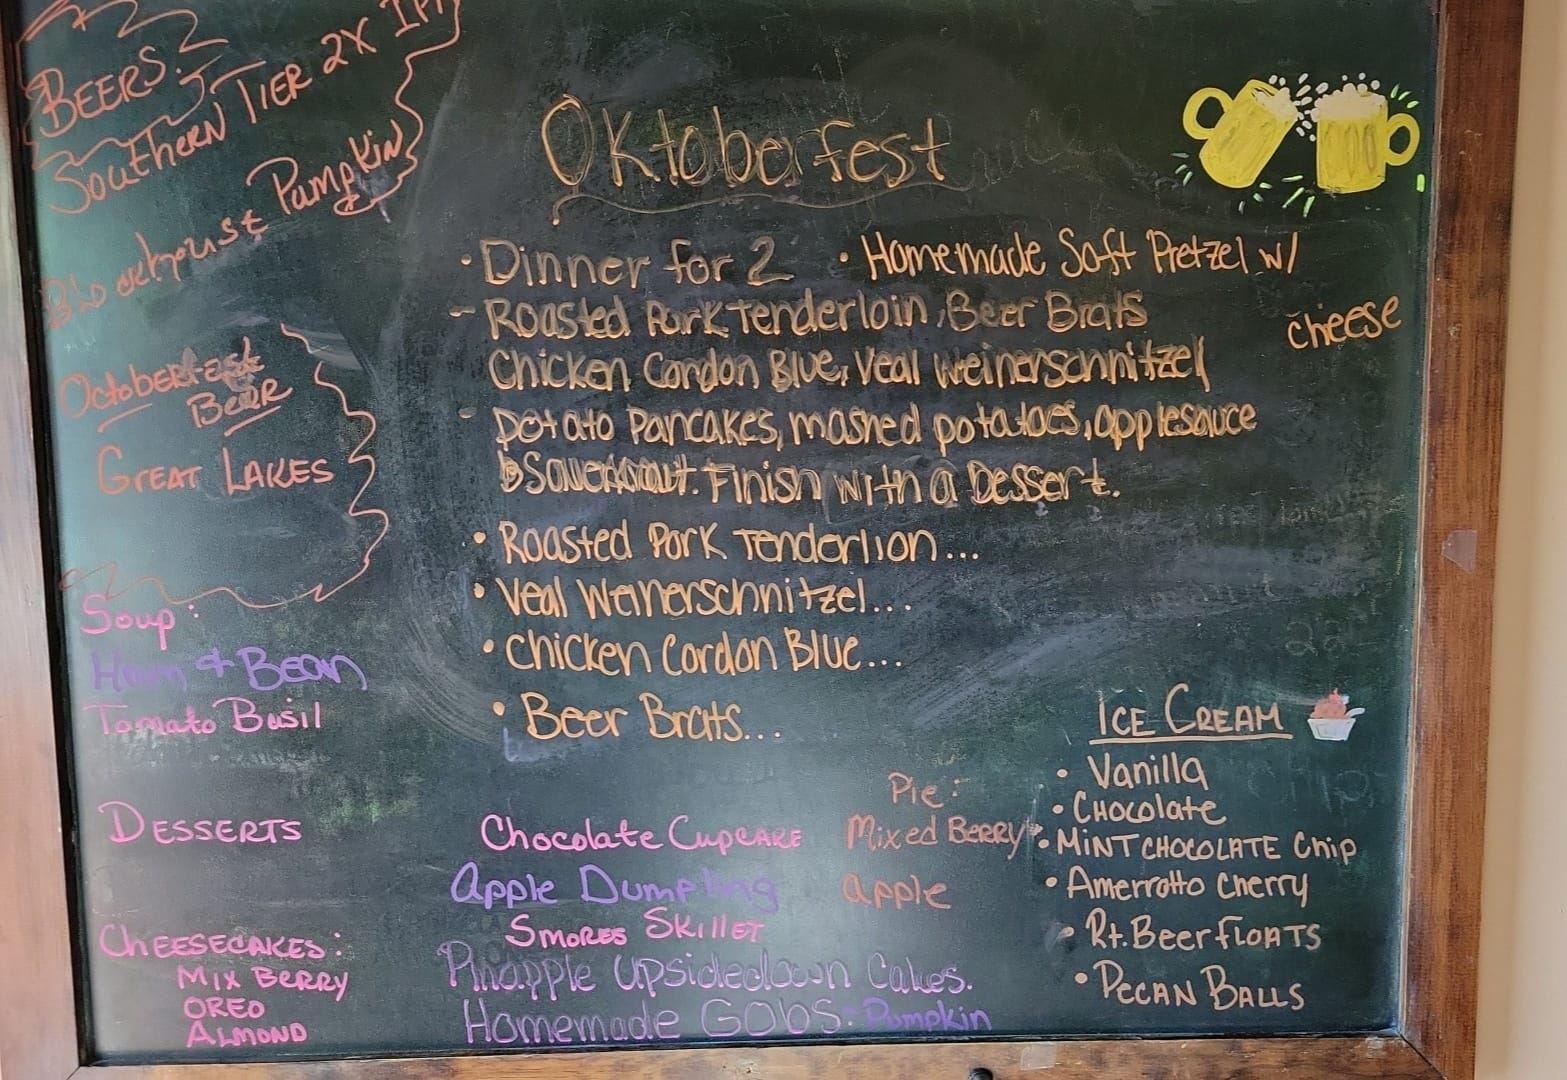 BEERS:
SOUTHERN TIER 2X IPA
Blockhouse Pumpkin
OCTOBERFEST
BEER
GREAT LAKES
Soup:
Ham & Bean
Tomato Basil
DESSERTS
CHEESECAKES:
MIX BERRY
OREO
ALMOND
Oktoberfest
• Dinner for 2 • Homemade Soft Pretzel w/
cheese
- Roasted Pork Tenderloin, Beer Brats
Chicken Cordon Blue, Veal Weinerschnitzel
- potato Pancakes, mashed potatoes, applesauce
Sauerkraut. Finish with a Dessert.
• Roasted Pork Tenderlion...
• Veal Weinerschnitzel...
• Chicken Cordon Blue...
• Beer Brats...
Chocolate Cupcake
Apple Dumpling
Smores Skillet
Pinapple Upsidedown Cakes.
Homemade GOBS: Pumpkin
Pie:
Mixed Berry
apple
ICE CREAM
• Vanilla
• CHOCOLATE
• MINT CHOCOLATE Chip
• Amerrotto Cherry
• Rt. Beer FLOATS
• PECAN BALLS